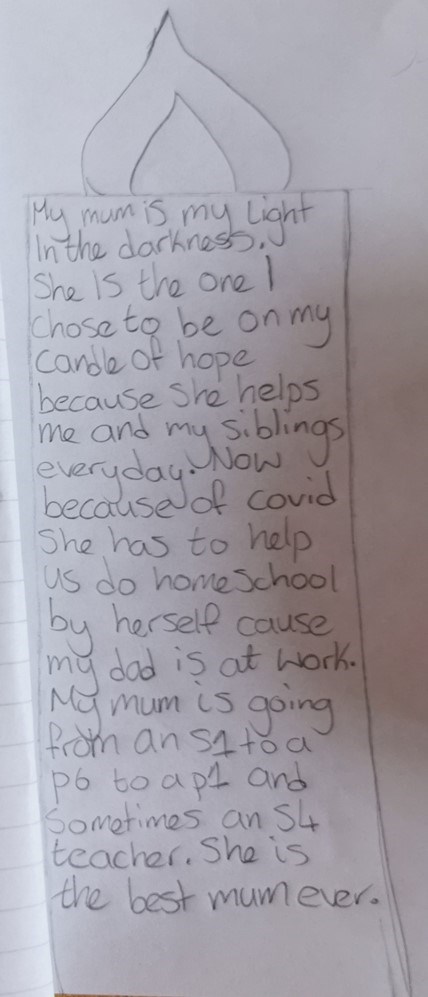 My mum is my Light
In the darkness.
She Is the one I
chose to be on my
candle of hope
because she helps
me and my siblings
everyday. Now
because of covid
she has to help
us do homeschool
by herself cause
my dad is at work.
My mum is going
from an S1 to a
P6 to a p1 and
Sometimes an S4
teacher. She is
the best mum ever.